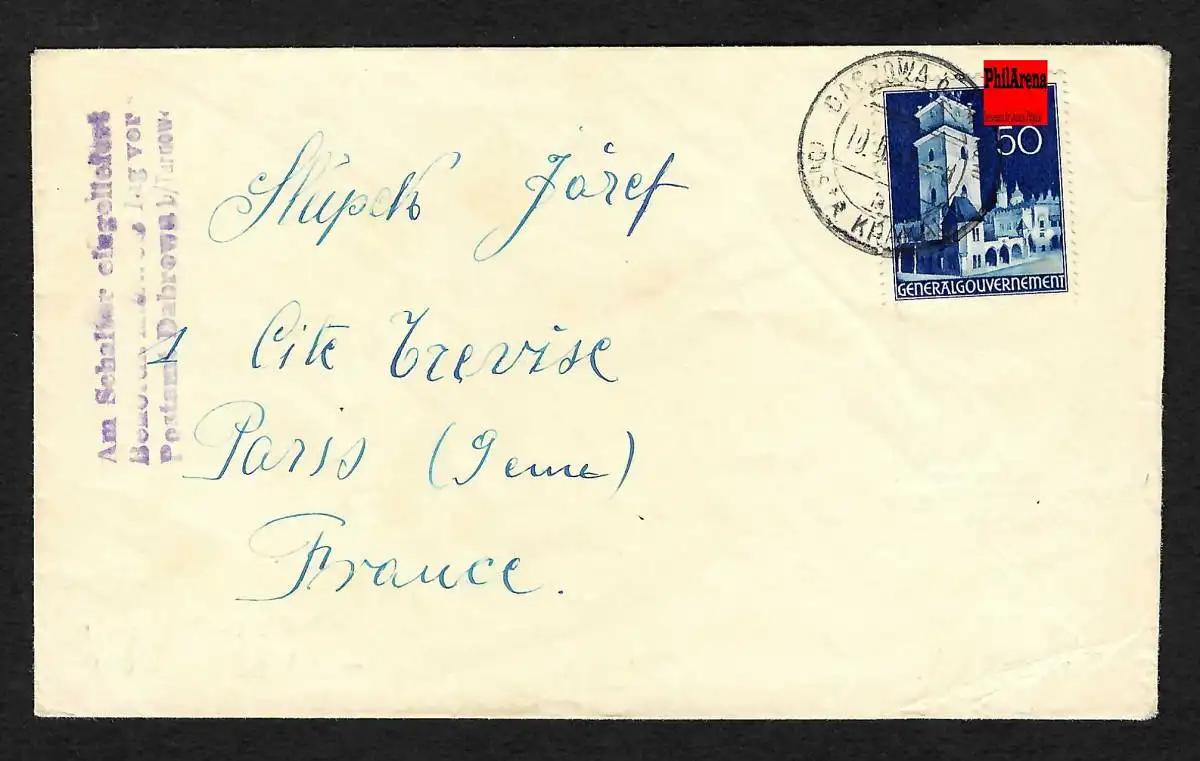 Am Schalter eingeliefert
vor
Postamt Dabrowa b/Tarnow
Słupek Józef
1 Cite Trevise
Paris (9eme)
France.
PhilArena
50
GENERALGOUVERNEMENT